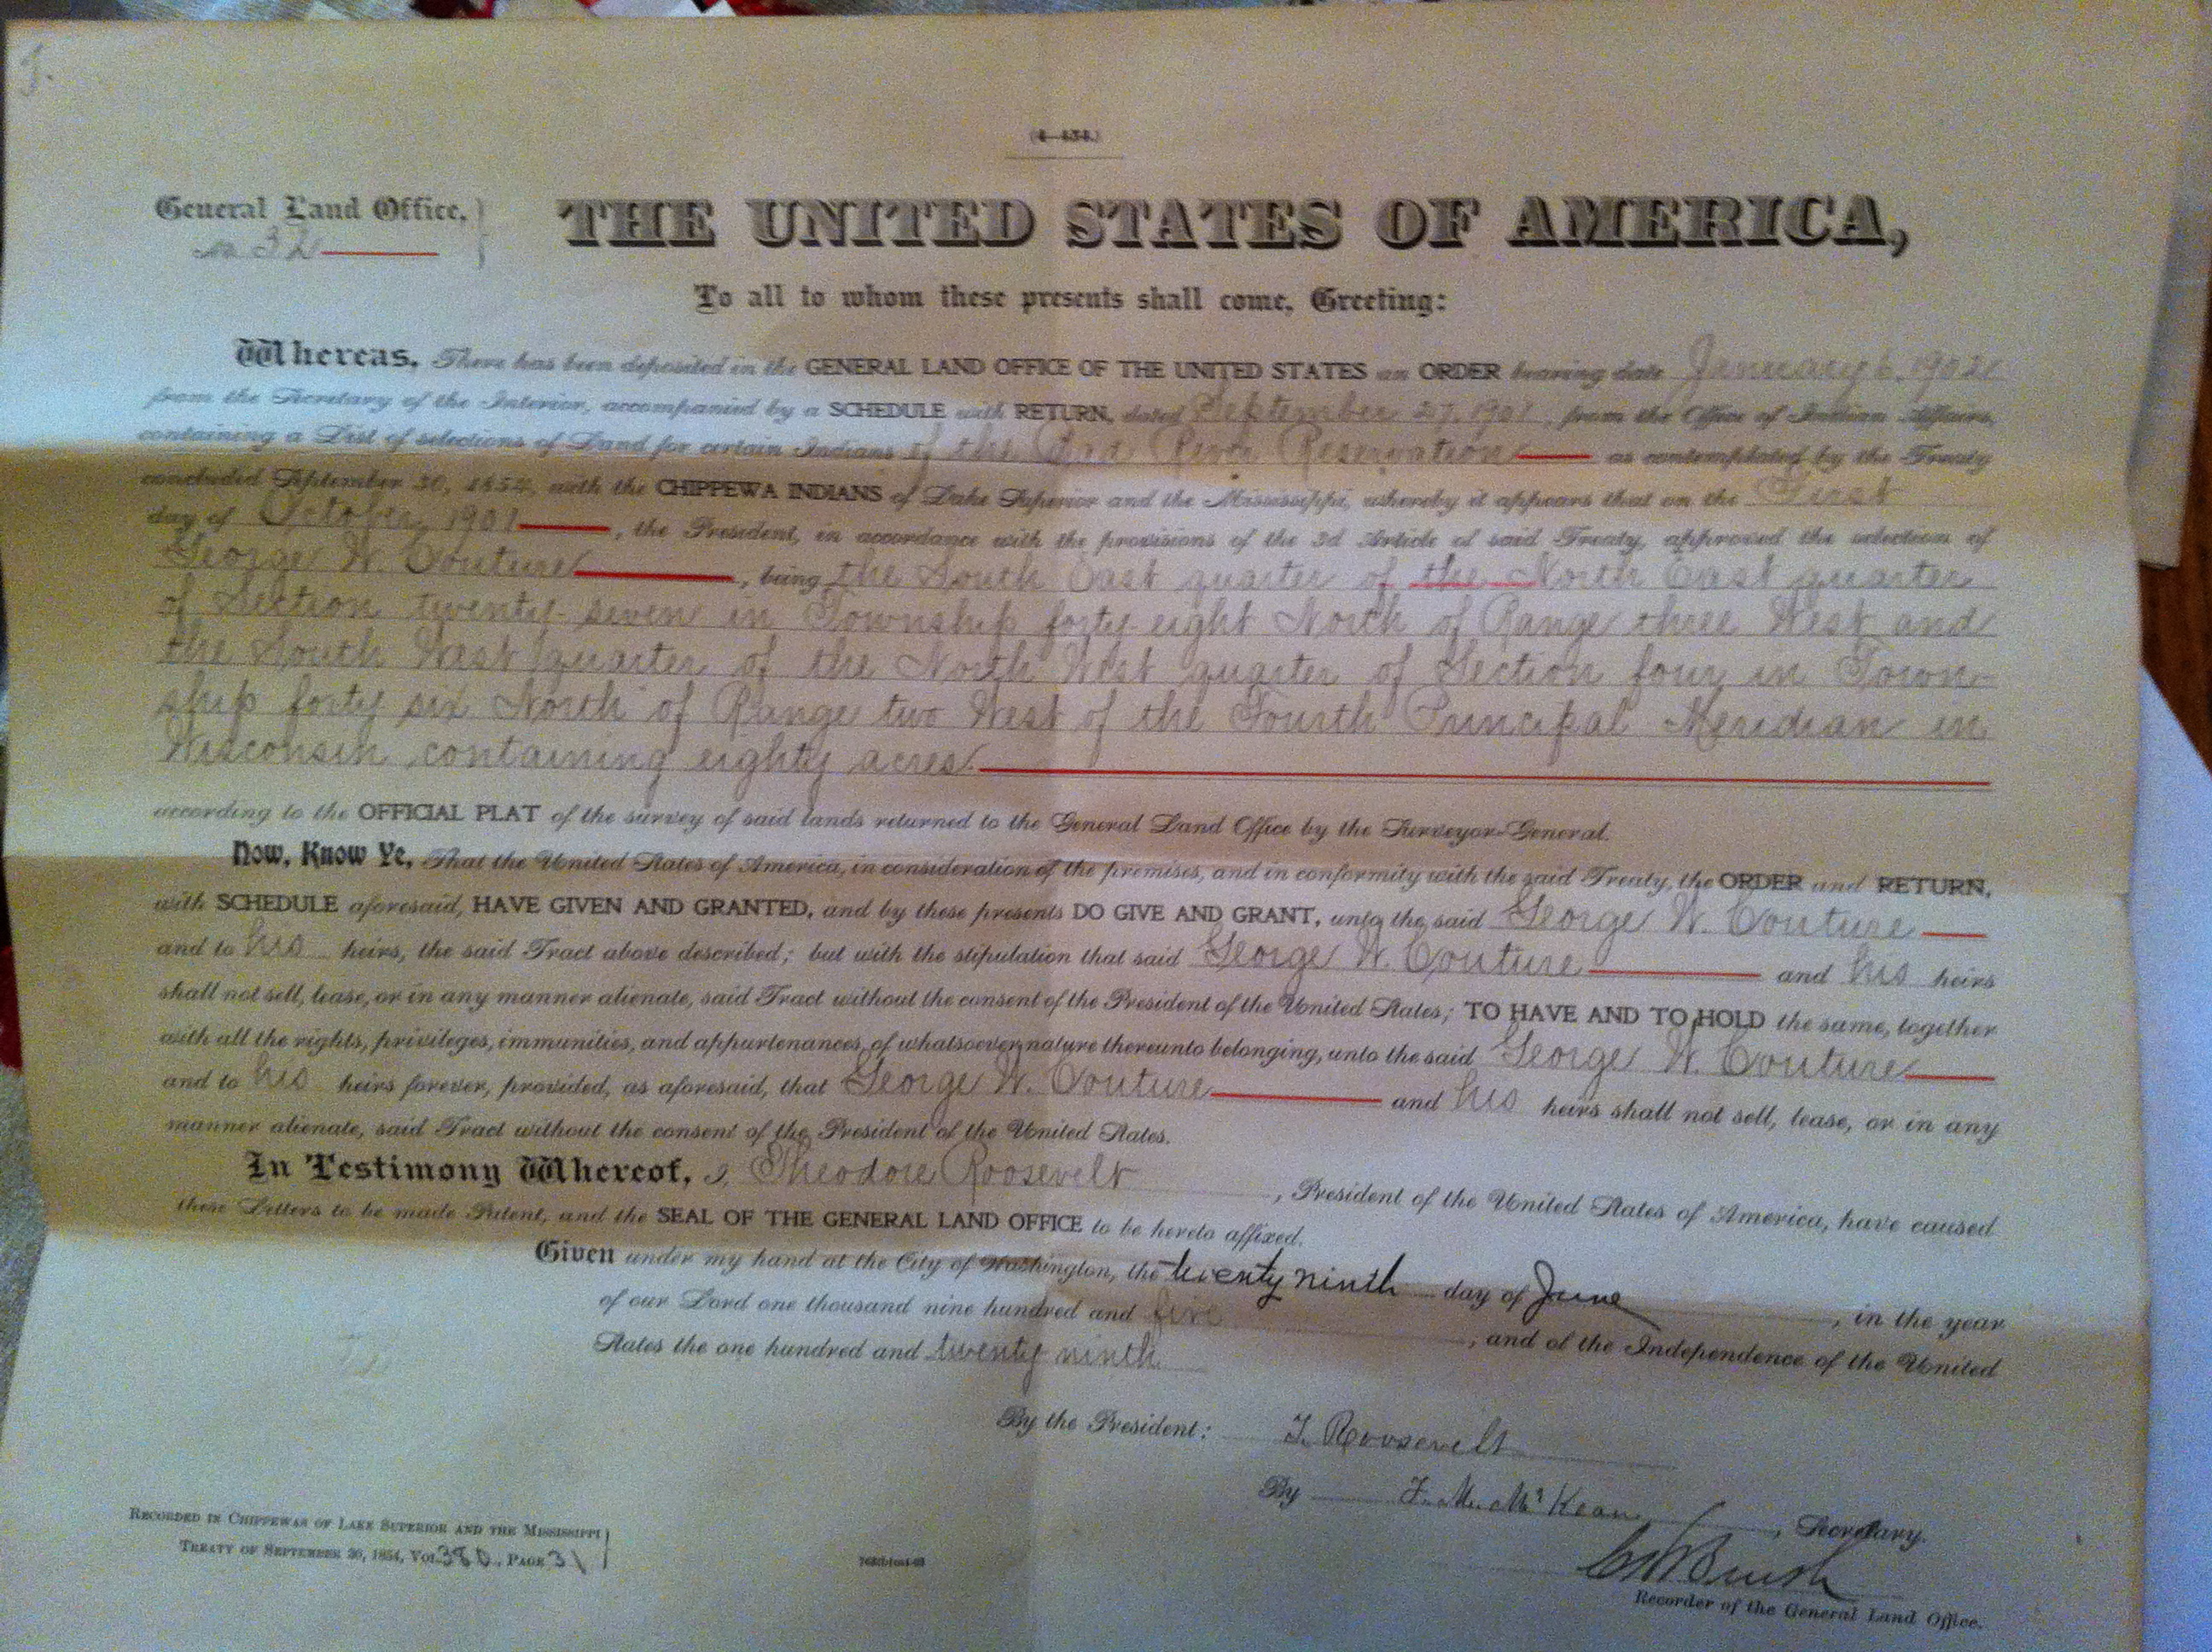 J.
(4-434.)
General Land Office,
No 32
THE UNITED STATES OF AMERICA,
To all to whom these presents shall come, Greeting:
Whereas, There has been deposited in the GENERAL LAND OFFICE OF THE UNITED STATES an ORDER bearing date January 6, 1902
from the Secretary of the Interior, accompanied by a SCHEDULE with RETURN, dated September 27, 1901, from the Office of Indian Affairs,
containing a List of selections of Land for certain Indians of the Bad River Reservation as contemplated by the Treaty
concluded September 30, 1854, with the CHIPPEWA INDIANS of Lake Superior and the Mississippi, whereby it appears that on the First
day of October, 1901, the President, in accordance with the provisions of the 3d Article of said Treaty, approved the selection of
George W. Couture, being the South East quarter of the North East quarter
of Section twenty-seven in Township forty-eight North of Range three West and
the South West quarter of the North West quarter of Section four in Town-
ship forty six North of Range two West of the Fourth Principal Meridian in
Wisconsin containing eighty acres.
according to the OFFICIAL PLAT of the survey of said lands returned to the General Land Office by the Surveyor-General.
Now, Know Ye, That the United States of America, in consideration of the premises, and in conformity with the said Treaty, the ORDER and RETURN,
with SCHEDULE aforesaid, HAVE GIVEN AND GRANTED, and by these presents DO GIVE AND GRANT, unto the said George W. Couture
and to his heirs, the said Tract above described; but with the stipulation that said George W. Couture and his heirs
shall not sell, lease, or in any manner alienate, said Tract without the consent of the President of the United States; TO HAVE AND TO HOLD the same, together
with all the rights, privileges, immunities, and appurtenances, of whatsoever nature thereunto belonging, unto the said George W. Couture
and to his heirs forever, provided, as aforesaid, that George W. Couture and his heirs shall not sell, lease, or in any
manner alienate, said Tract without the consent of the President of the United States.
In Testimony Whereof, I, Theodore Roosevelt, President of the United States of America, have caused
these Letters to be made Patent, and the SEAL OF THE GENERAL LAND OFFICE to be hereto affixed.
Given under my hand at the City of Washington, the twenty ninth day of June, in the year
of our Lord one thousand nine hundred and five, and of the Independence of the United
States the one hundred and twenty ninth
By the President: T. Roosevelt
By F. M. McKean, Secretary.
Recorder of the General Land Office.
RECORDED IN CHIPPEWAS OF LAKE SUPERIOR AND THE MISSISSIPPI
TREATY OF SEPTEMBER 30, 1854, VOL. 380, PAGE 31